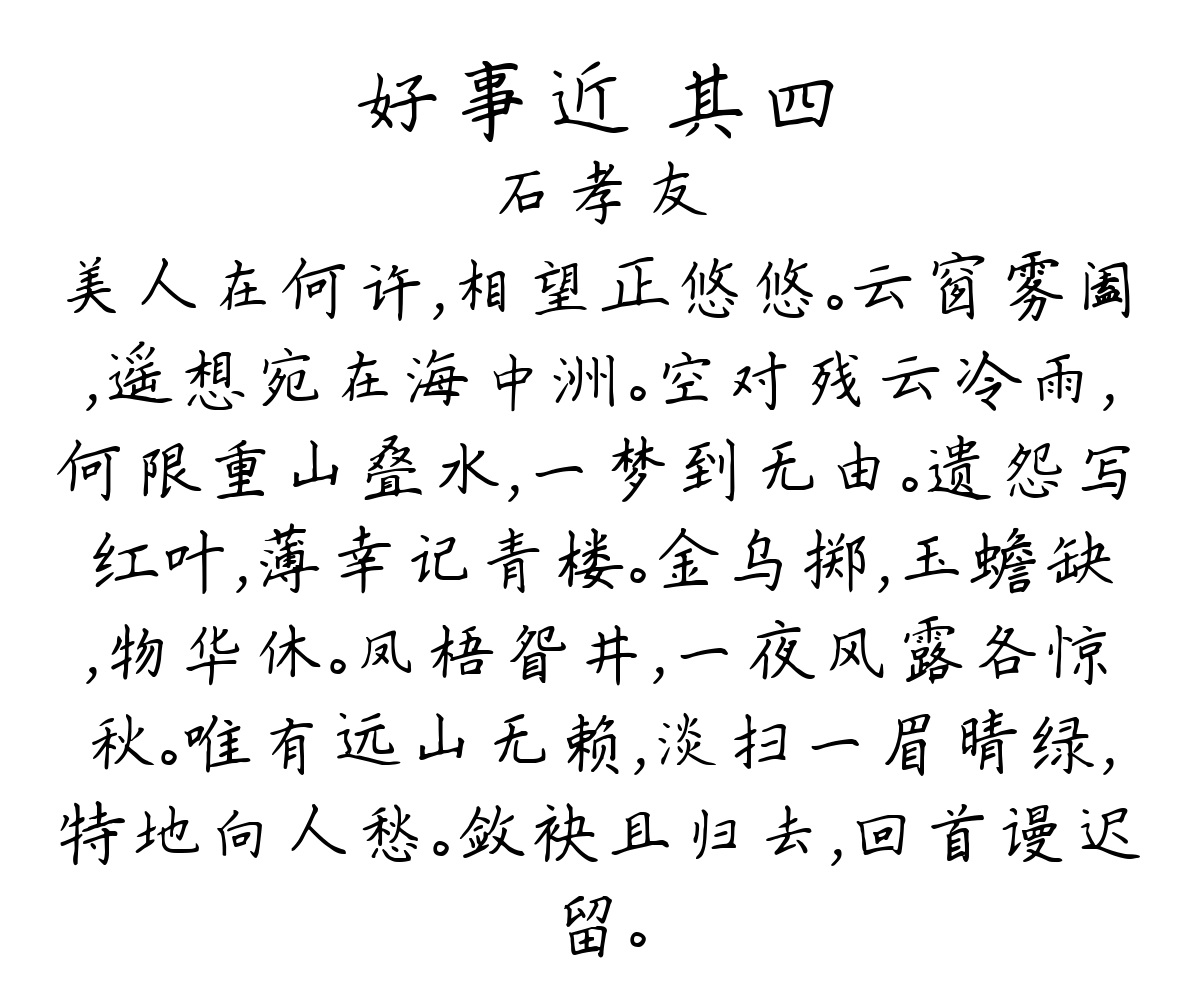 好事近 其四
石孝友
美人在何许,相望正悠悠。云窗雾阖
,遥想宛在海中洲。空对残云冷雨,
何限重山叠水,一梦到无由。遗怨写
红叶,薄幸记青楼。金乌掷,玉蟾缺
,物华休。凤梧眢井,一夜风露各惊
秋。唯有远山无赖,淡扫一眉晴绿,
特地向人愁。敛袂且归去,回首谩迟
留。